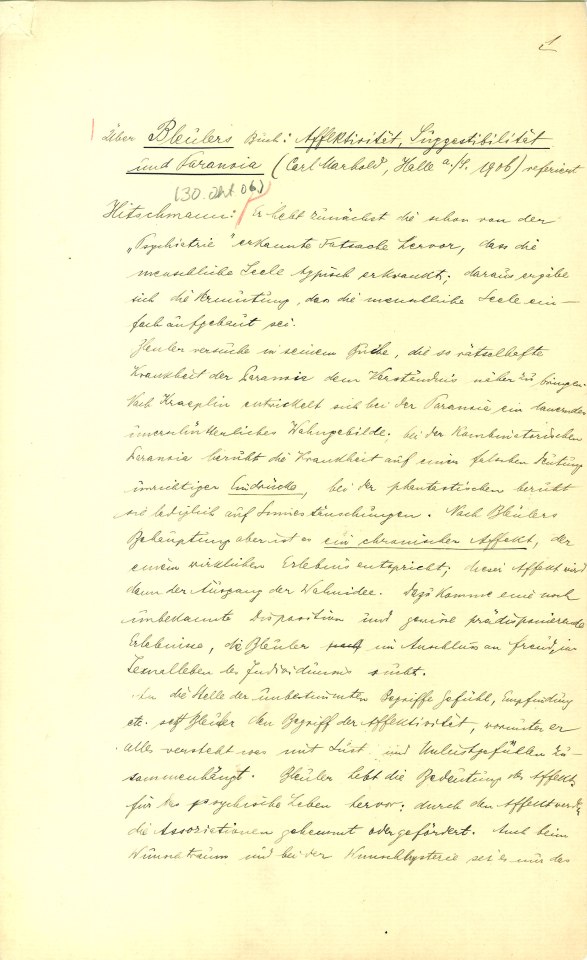 1
Über Bleulers Buch: Affektivität, Suggestibilität
und Paranoia (Carl Marhold, Halle a./S. 1906) referiert
(30. Okt 06.)
Hitschmann: Er hebt zunächst die schon von der
„Psychiatrie" erkannte Tatsache hervor, dass die
menschliche Seele typisch erkrankt; daraus ergäbe
sich die Vermutung, dass die menschliche Seele ein-
fach aufgebaut sei.
Bleuler versuche in seinem Buche, die so rätselhafte
Krankheit der Paranoia dem Verständnis näher zu bringen.
Nach Kraepelin entwickelt sich bei der Paranoia ein dauerndes
unerschütterliches Wahngebilde. bei der Kombinatorischen
Paranoia beruht die Krankheit auf einer falschen Deutung
unrichtiger Eindrücke, bei der phantastischen beruht
sie lediglich auf Sinnestäuschungen. Nach Bleulers
Behauptung aber ist es ein chronischer Affekt, der
einem wirklichen Erlebnis entspricht; dieser Affekt wird
dann der Ausgang der Wahnidee. Dazu komme eine noch
unbekannte Disposition und gewisse prädisponierende
Erlebnisse, die Bleuler im Anschluss an Freud, im
Sexualleben des Individuums sucht.
An die Stelle der unbestimmten Begriffe Gefühl, Empfindung
etc. setzt Bleuler den Begriff der Affektivität, worunter er
alles versteht was mit Lust und Unlustgefühlen zu-
sammenhängt. Bleuler hebt die Bedeutung des Affekts
für das psychische Leben hervor: durch den Affekt werden
die Assoziationen gehemmt oder gefördert. Auch beim
Wunschtraum und bei der Wunschhysterie sei es nur das